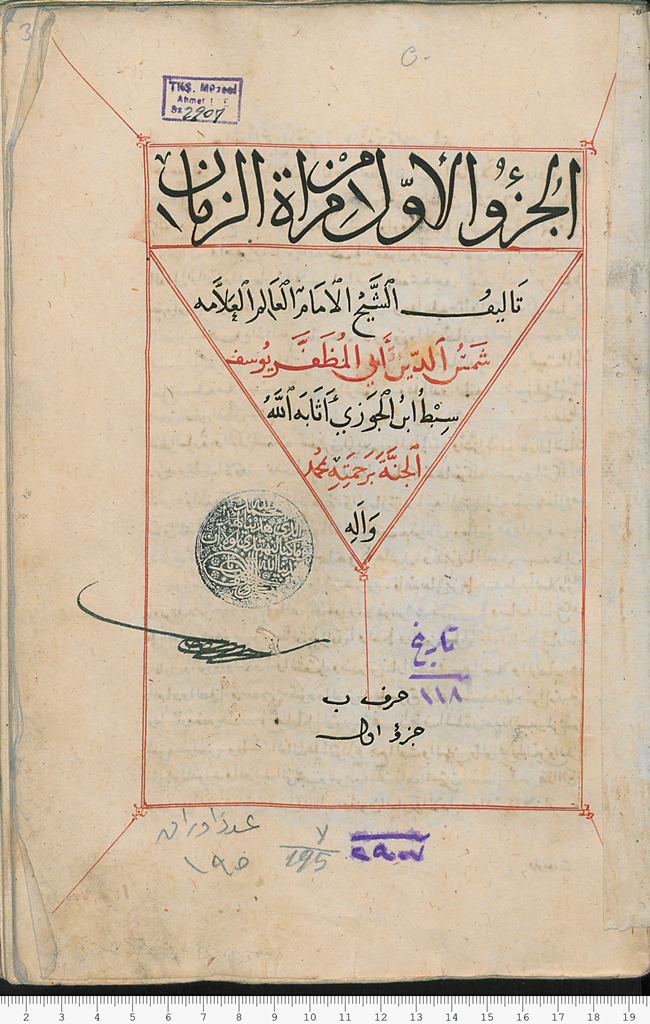 3
TKS. Mrzesi
Ahmet I I
Sz 2907
الجزؤ الاول من مراة الزمان
تاليف الشيخ الامام العالم العلامه
شمس الدين أبي المظفر يوسف
سبط ابن الجوزي أثابه الله
الجنة برحمته بمحمد
وآله
تاريخ
١١٨
حرف ب
جزؤ اول
عدد اوراق
١٩٥
y
195
٢٩٠٧
2 3 4 5 6 7 8 9 10 11 12 13 14 15 16 17 18 19